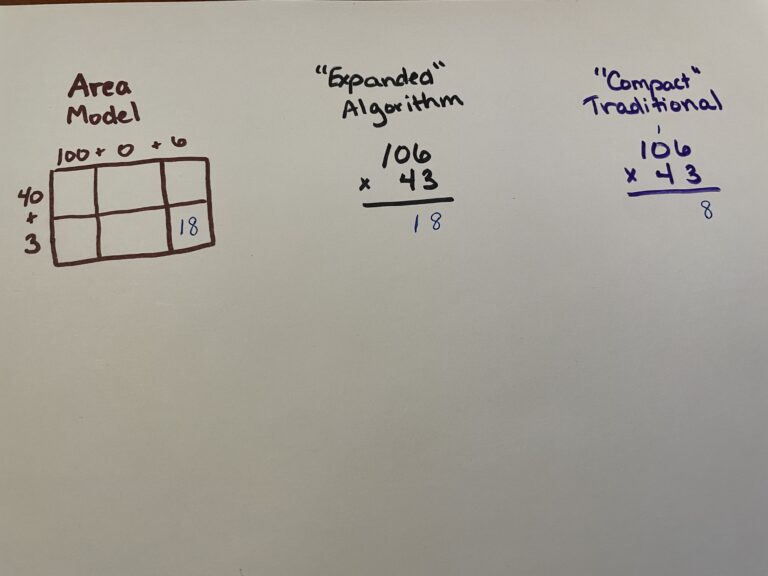 Area
Model
100 + 0 + 6
40
+
3
18
"Expanded"
Algorithm
106
x 43
18
"Compact"
Traditional
1
106
x 43
8